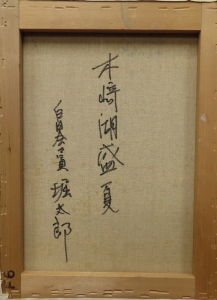 木崎湖盛夏
白日会会員 堀太郎
F6